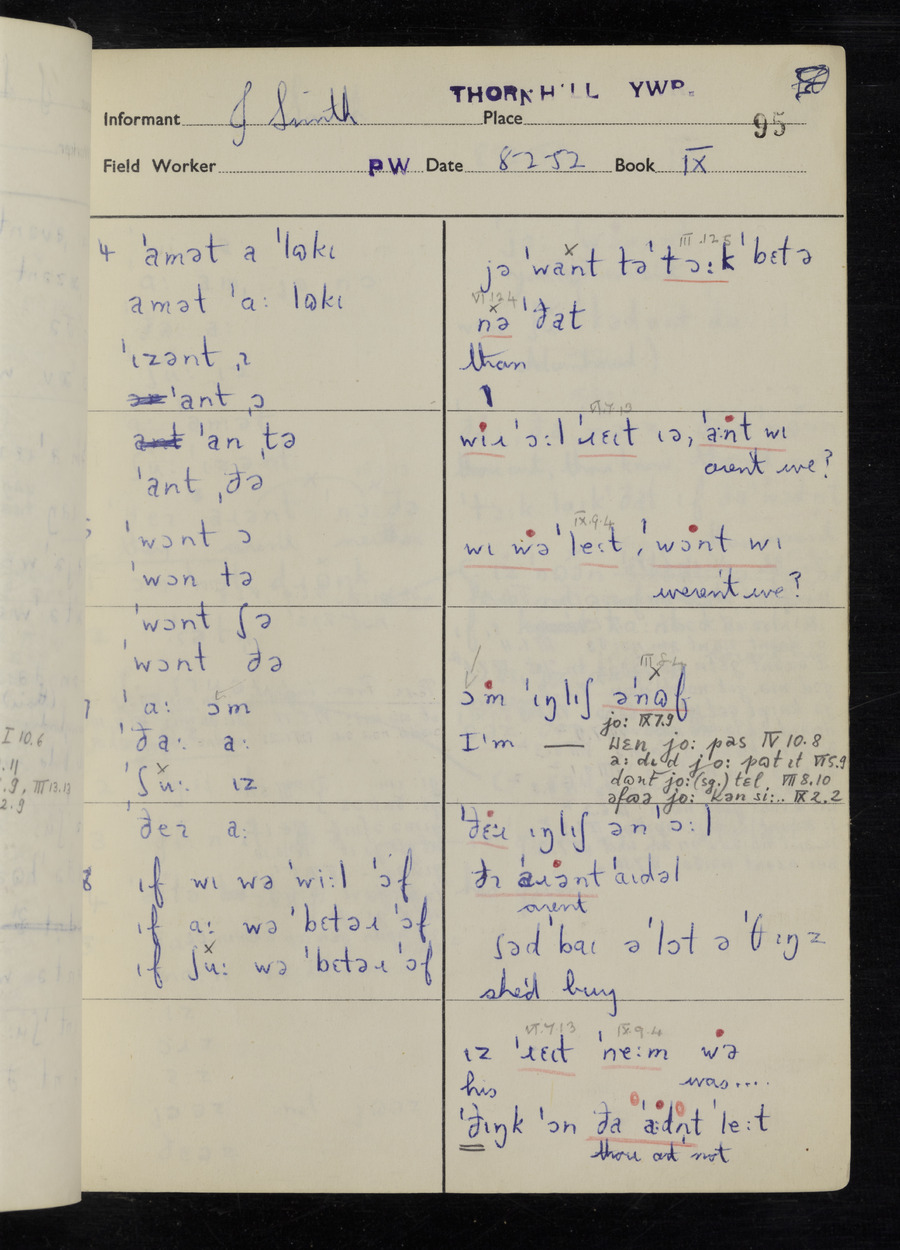 THORNHILL YWR.
Informant J Smith Place 95
Field Worker PW Date 8-2-52 Book IX
4 ˈamət a ˈlɷkɪ
amət ˈaː lɷkɪ
ˈɪzənt ˌɪ
ˈant ˌɔ
ˈan ˌtə
ˈant ˌðə
ˈwɔnt ɔ
ˈwɔn tə
ˈwɔnt ʃə
ˈwɔnt ðə
7 ˈaː ɔm
ˈðaː aː
x
ˈʃuː ɪz
ˈðeɪ aː
8 ɪf wɪ wə ˈwiːl ˈɔf
ɪf aː wə ˈbɛtəɹ ˈɔf
x
ɪf ʃuː wə ˈbɛtəɹ ˈɔf
III.12.5
x
jə ˈwant tə ˈtɔːk ˈbɛtə
VI.12.4
x
nə ˈðat
than
VI.7.13
wɪɹ ˈɔːl ˈɹɛɪt ɪə, ˈaːnt wɪ
arent we?
IX.9.4
wɪ wə ˈleːt, ˈwɔnt wɪ
weren't we?
III.8.4
x
ɔm ˈɪŋlɪʃ əˈnɷf
joː IX.7.9
I'm — ʍɛn joː pas IV 10.8
aː dɪd joː pɷt ɪt VI5.9
dɷnt joː (sg.) tɛl VIII 8.10
əfɷə joː kən siː.. IX 2.2
ˈðɛɪɹ ɪŋlɪʃ ən ˈɔːl
ðɪ ˈaɹənt ˈaɪdəl
arent
ʃəd ˈbaɪ ə ˈlɔt ə ˈθɪŋz
she'd buy
VI.7.13 IX.9.4
ɪz ˈɹɛɪt ˈneːm wə
his was....
ˈðɪŋk ˈɔn ða ˈaːdn̩t ˈleːt
thou art not
I 10.6
.9, III 13.17
2.9